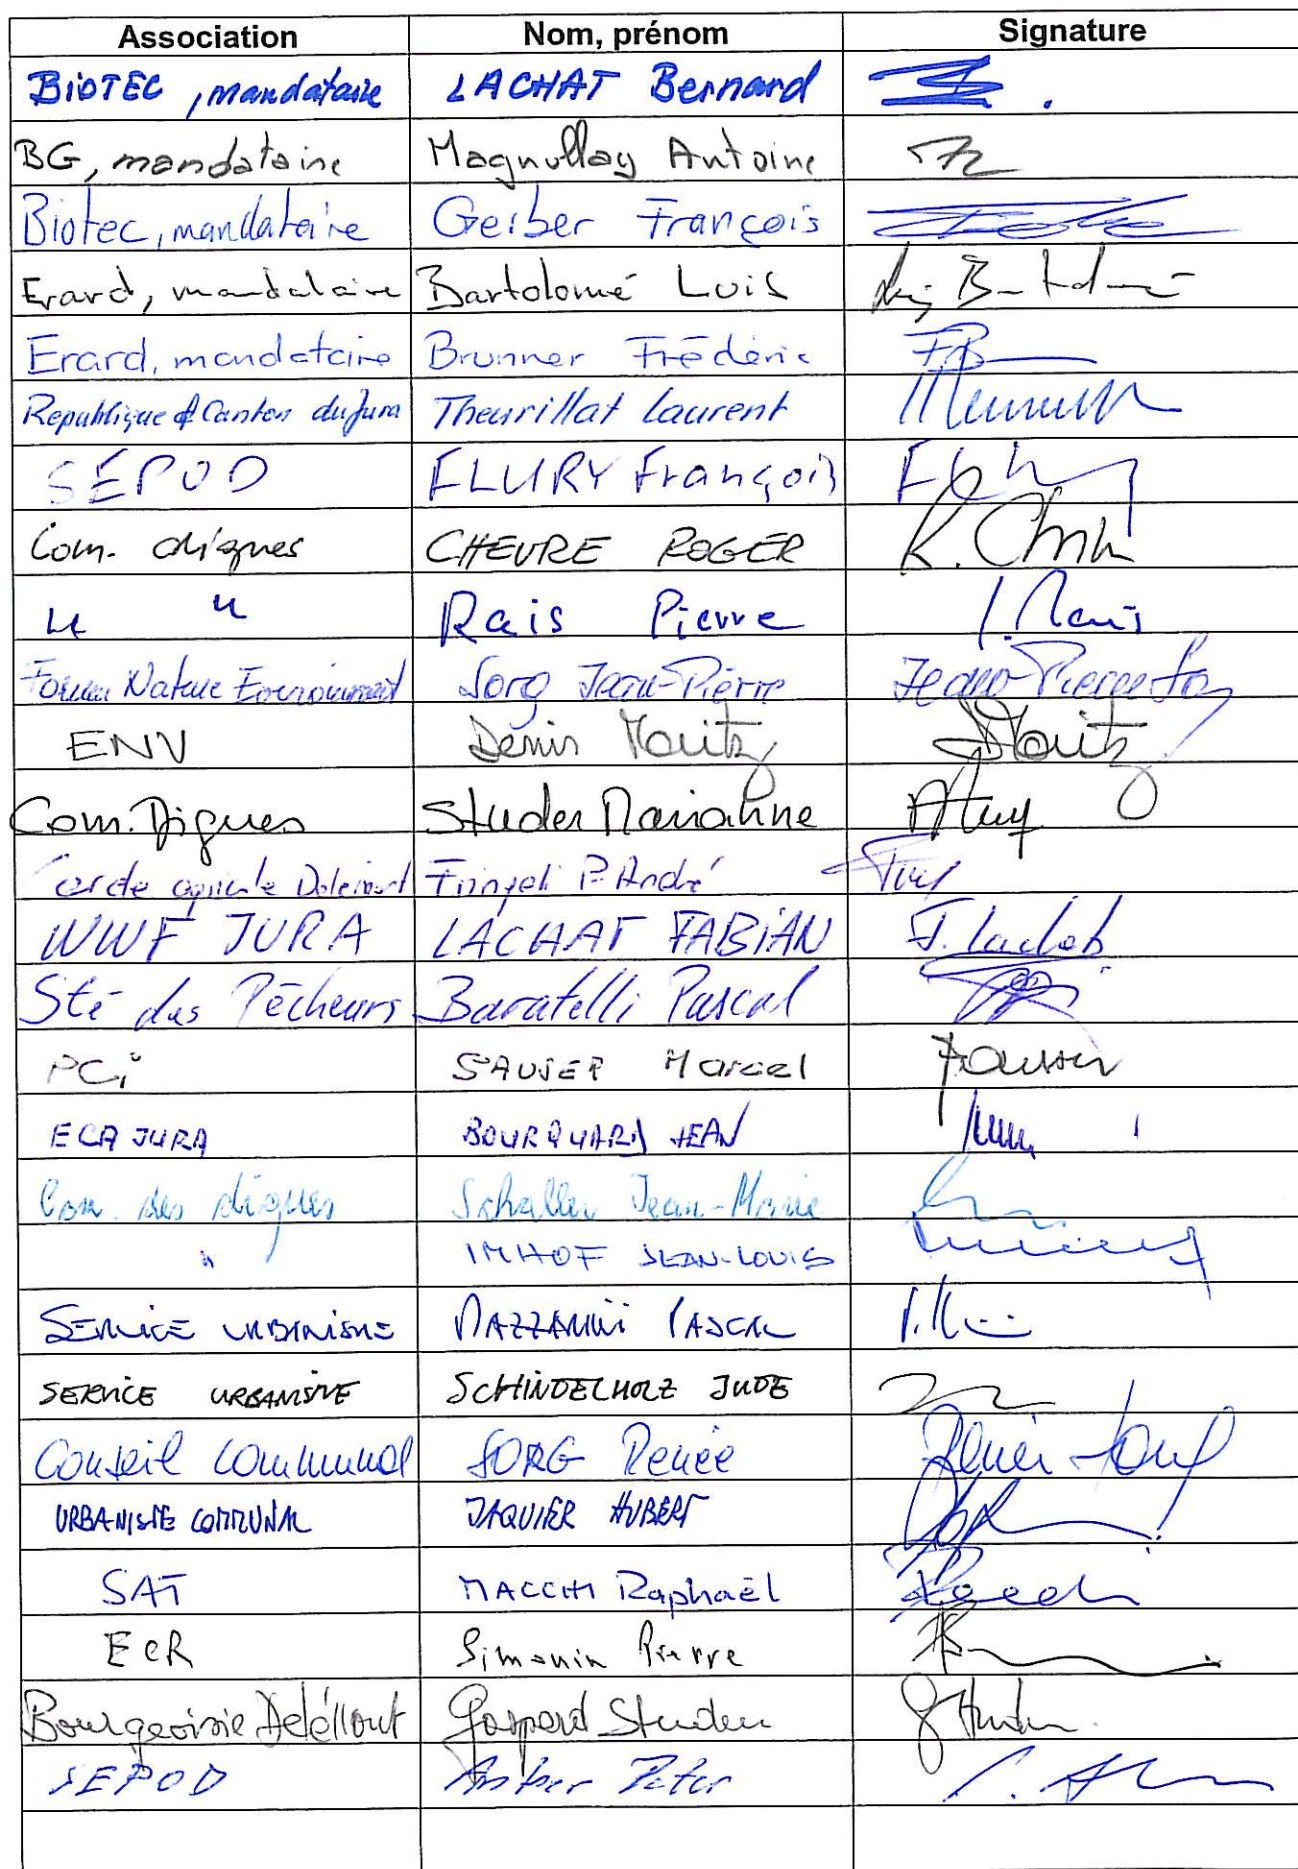 Association Nom, prénom Signature
BIOTEC, mandataire LACHAT Bernard
BG, mandataire Magnollay Antoine
Biotec, mandataire Gerber François
Erard, mandataire Bartolomé Luis
Erard, mandataire Brunner Frédéric F.B
Republique & Canton du Jura Theurillat Laurent
SEPOD FLURY François
Com. digues CHEVRE ROGER R. Chevre
" " Rais Pierre P. Rais
Forum Nature Environnement Sorg Jean-Pierre Jean-Pierre Sorg
ENV Denis Moritz DMoritz
Com. Digues Studer Marianne
Cercle agricole Delémont P. André
WWF JURA LACHAT FABIAN F. Lachat
Sté des Pêcheurs Baratelli Pascal
PCi SAUSER Marcel Sauser
ECA JURA BOURQUARD JEAN
Com. des digues Schaller Jean-Marie
" IMHOF JEAN-LOUIS
SERVICE URBANISME MAZZARINI PASCAL
SERVICE URBANISME SCHINDELHOLZ JUDE
Conseil communal SORG Renée Renée Sorg
URBANISTE COMMUNAL JAQUIER HUBERT
SAT MACCHI Raphaël
ECR Simonin Pierre
Bourgeoisie Delémont Gaspard Studer G Studer
SEPOD Peter